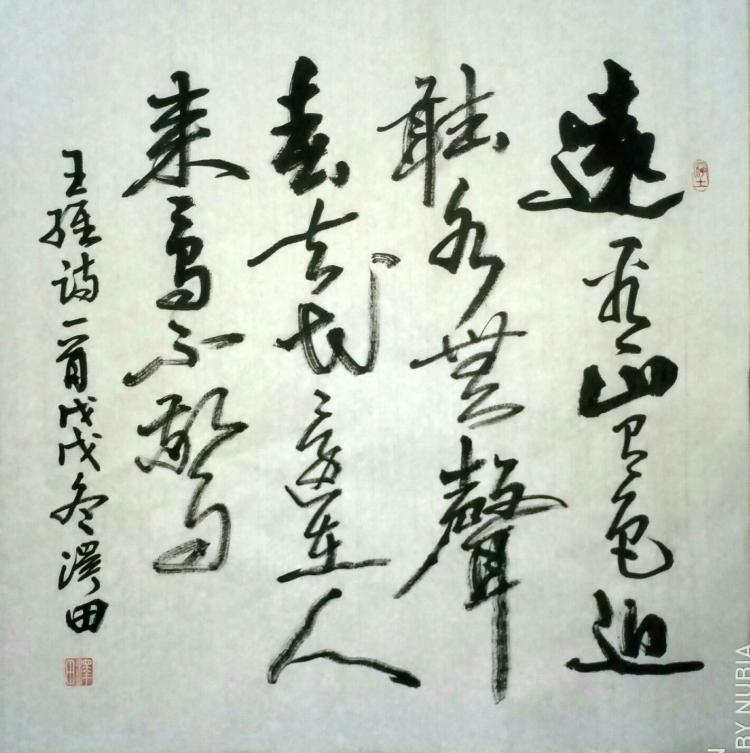 遠看山有色近
聽水無聲
春去花還在人
来鳥不驚
王維诗一首戊戌冬溪田
BY NUBIA